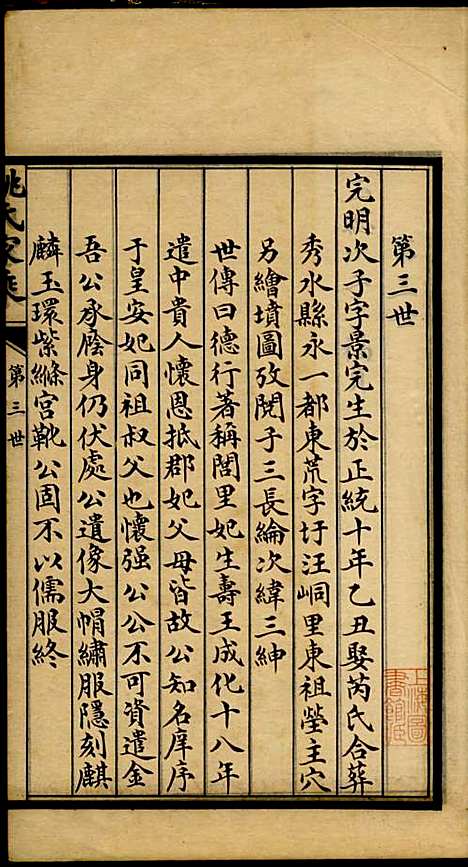 第三世
完明次子字景完生於正統十年乙丑娶芮氏合葬
秀水縣永一都東荒字圩汪峒里東祖塋主穴
另繪墳圖攷閱子三長綸次緯三紳
世傳曰德行著稱閭里妃生壽王成化十八年
遣中貴人懷恩抵郡妃父母皆故公知名庠序
于皇安妃同祖叔父也懷强公公不可資遣金
吾公承廕身仍伏處公遺像大帽繡服隱刻麒
麟玉環紫縧宮靴公固不以儒服終
姚氏家乘
第三世
上海圖書館藏